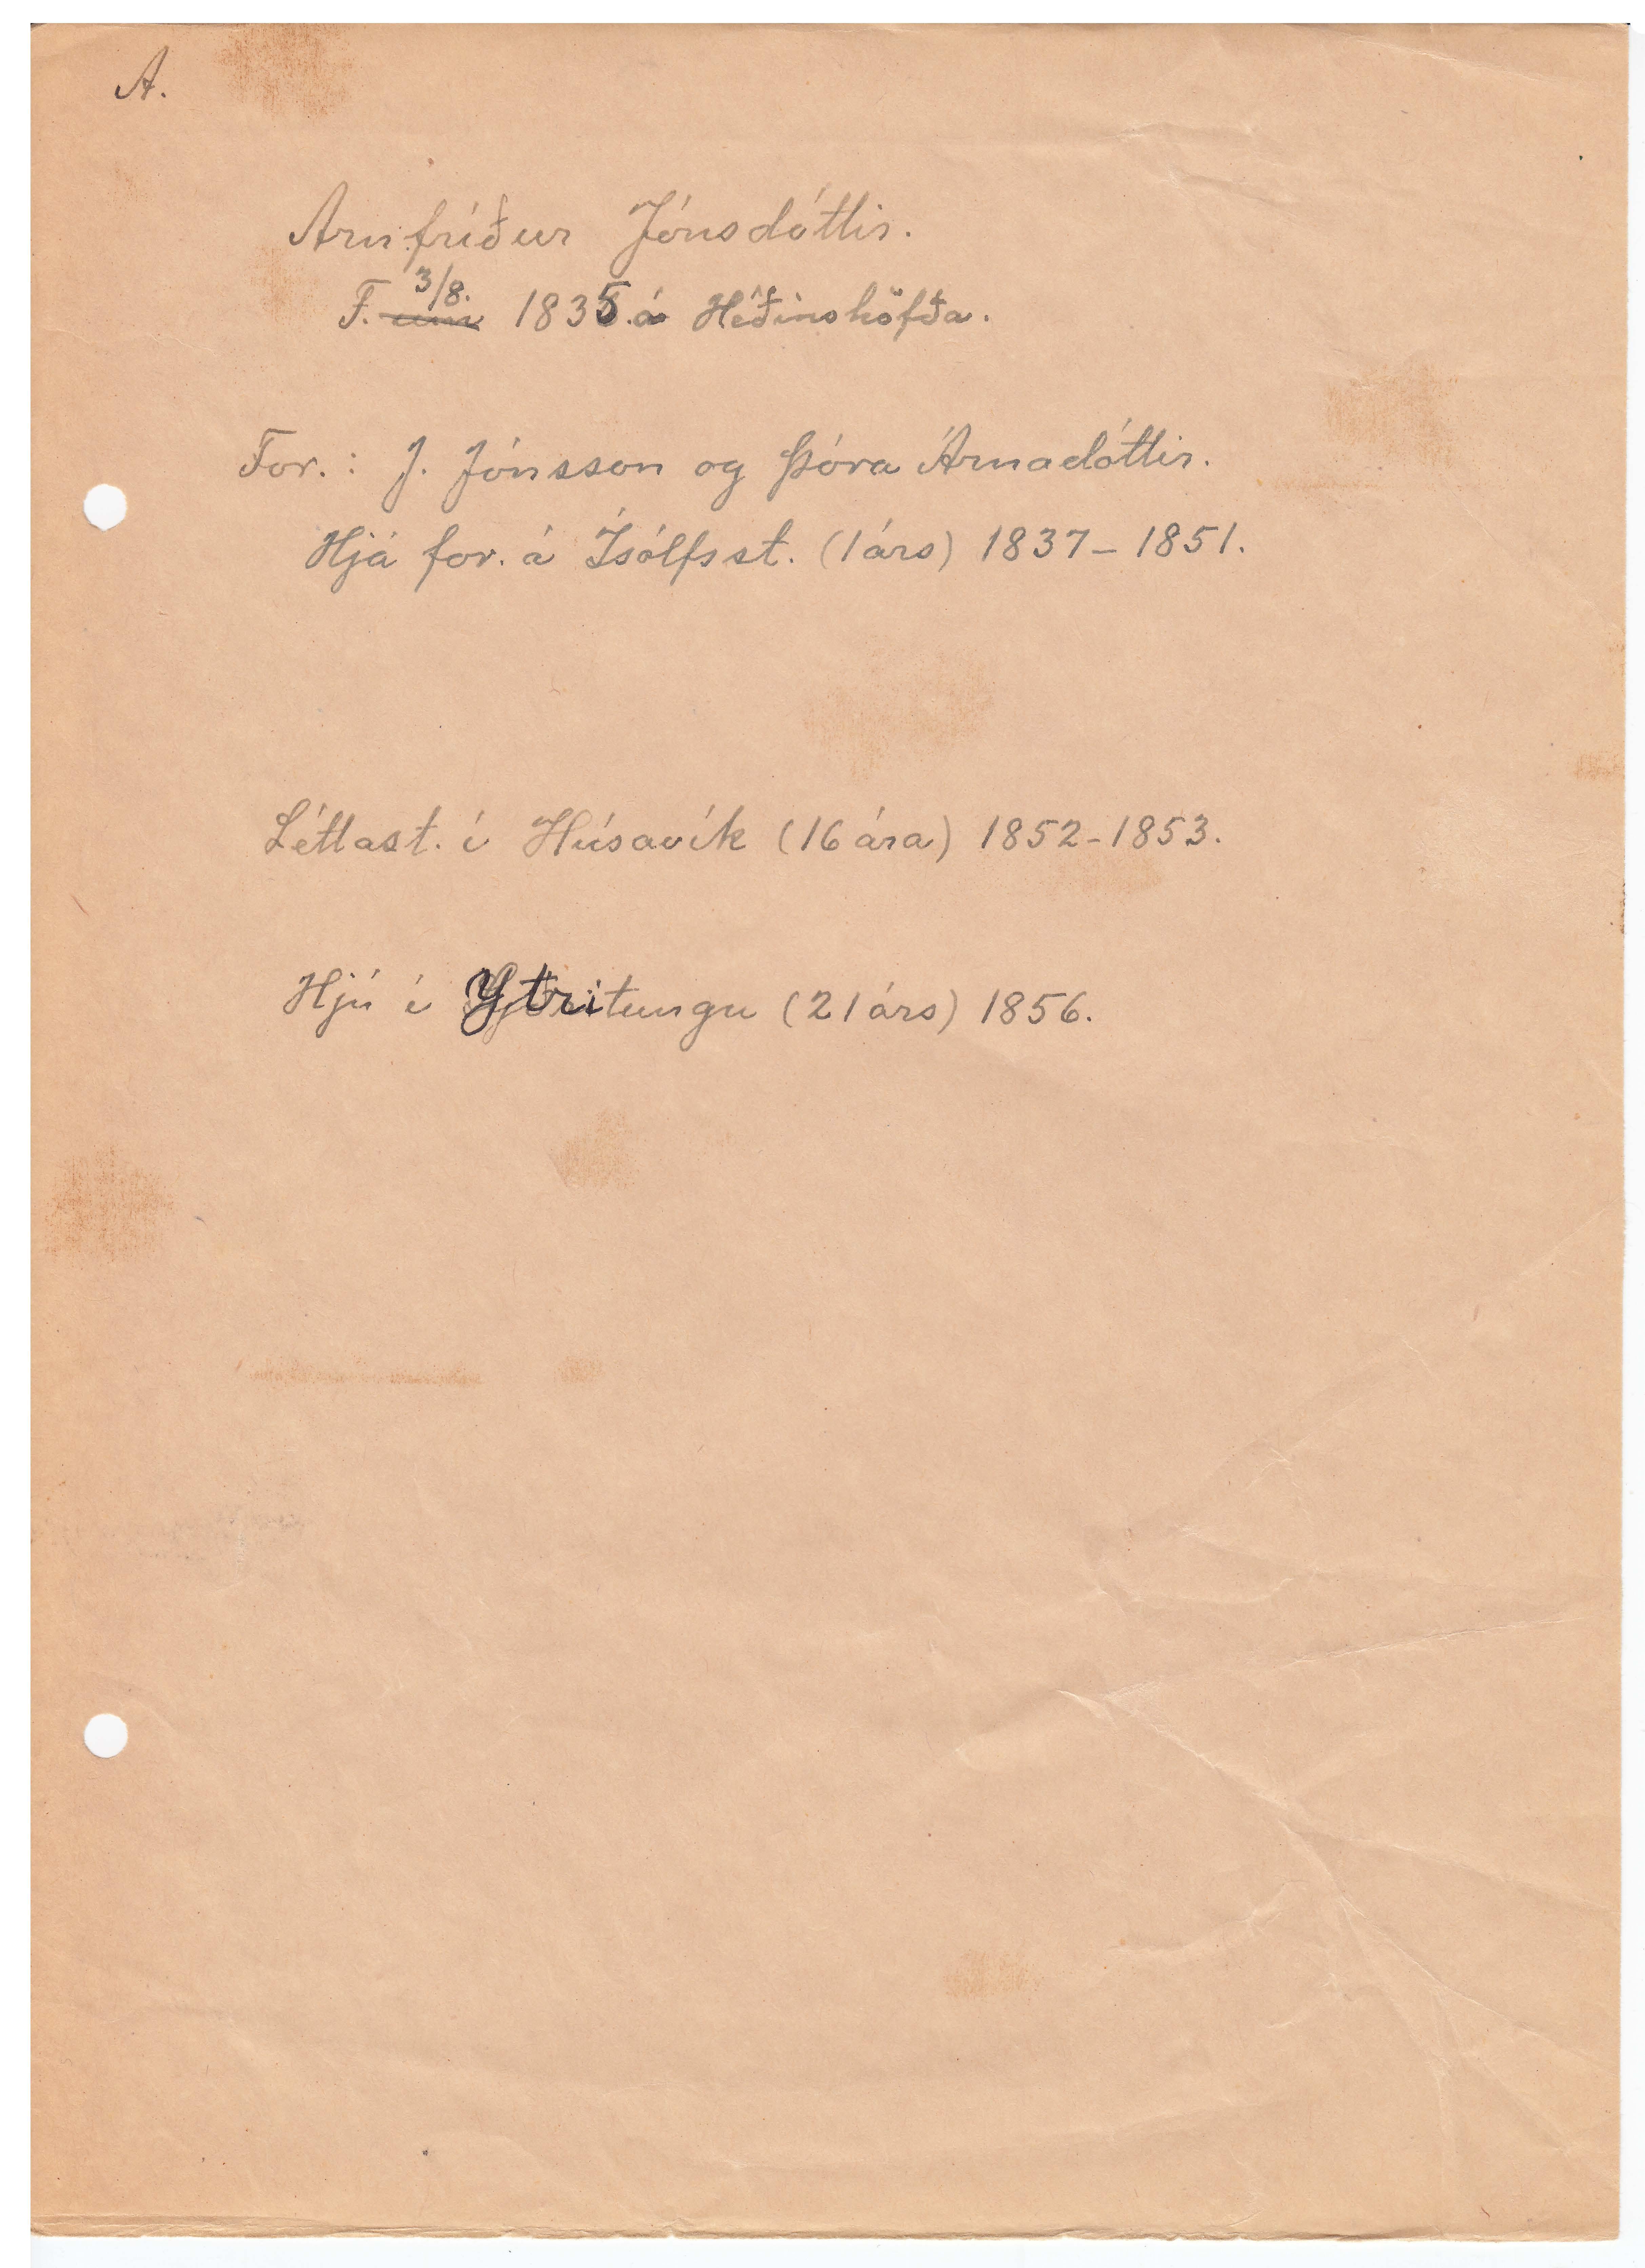 A.
Arnfríður Jónsdóttir.
F. 3/8. 1835 á Héðinshöfða.
For.: J. Jónsson og Þóra Árnadóttir.
Hjá for. á Ísólfsst. (1 árs) 1837 – 1851.
Léttast. í Húsavík (16 ára) 1852 - 1853.
Hjú í Ytritungu (21 árs) 1856.